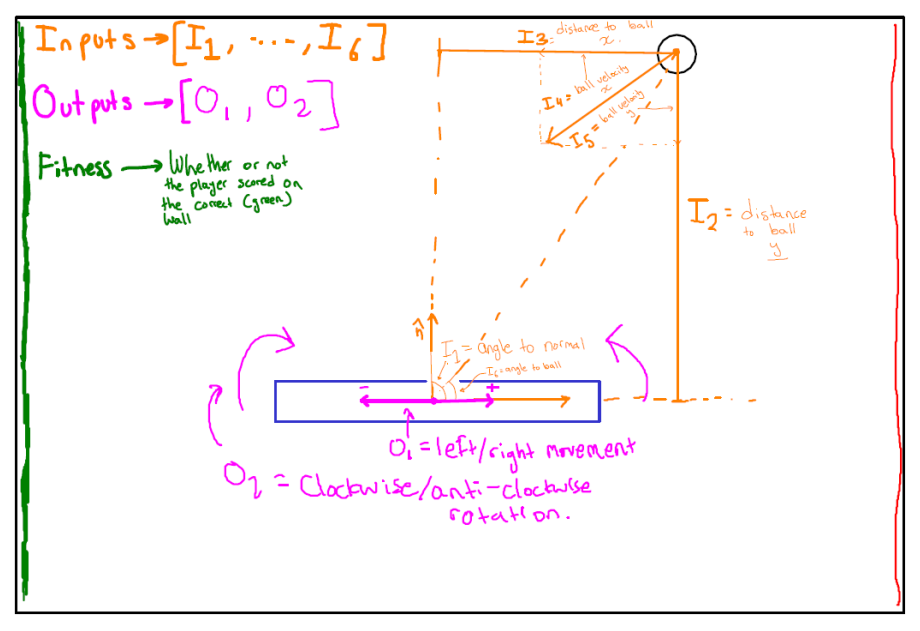 Inputs → [I1, ...., I6]
Outputs → [O1, O2]
Fitness → Whether or not
the player scored on
the correct (green)
wall
I3 = distance to ball
x.
I4 = ball velocity
x
I5 = ball velocity
y
I2 = distance
to ball
y
n̂
I1 = angle to normal
I6 = angle to ball
- +
O1 = left/right movement
O2 = Clockwise/anti-clockwise
rotation.